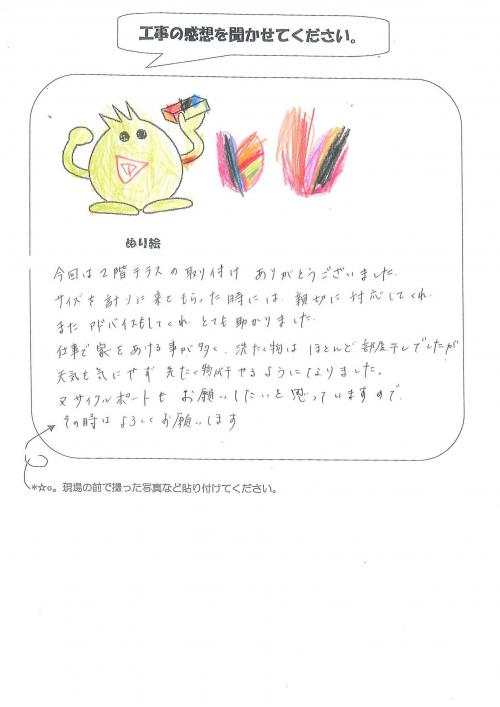 工事の感想を聞かせてください。
ぬり絵
今回は2階テラスの取り付け ありがとうございました。
サイズを計りに来てもらった時には、親切に対応してくれ
また アドバイスもしてくれ とても助かりました。
仕事で家をあける事が多く、洗たく物は ほとんど部屋干しでしたが
天気を気にせず 洗たく物が干せるようになりました。
又サイクルポートも お願いしたいと思っていますので、
その時はよろしくお願いします
*☆o。現場の前で撮った写真など貼り付けてください。